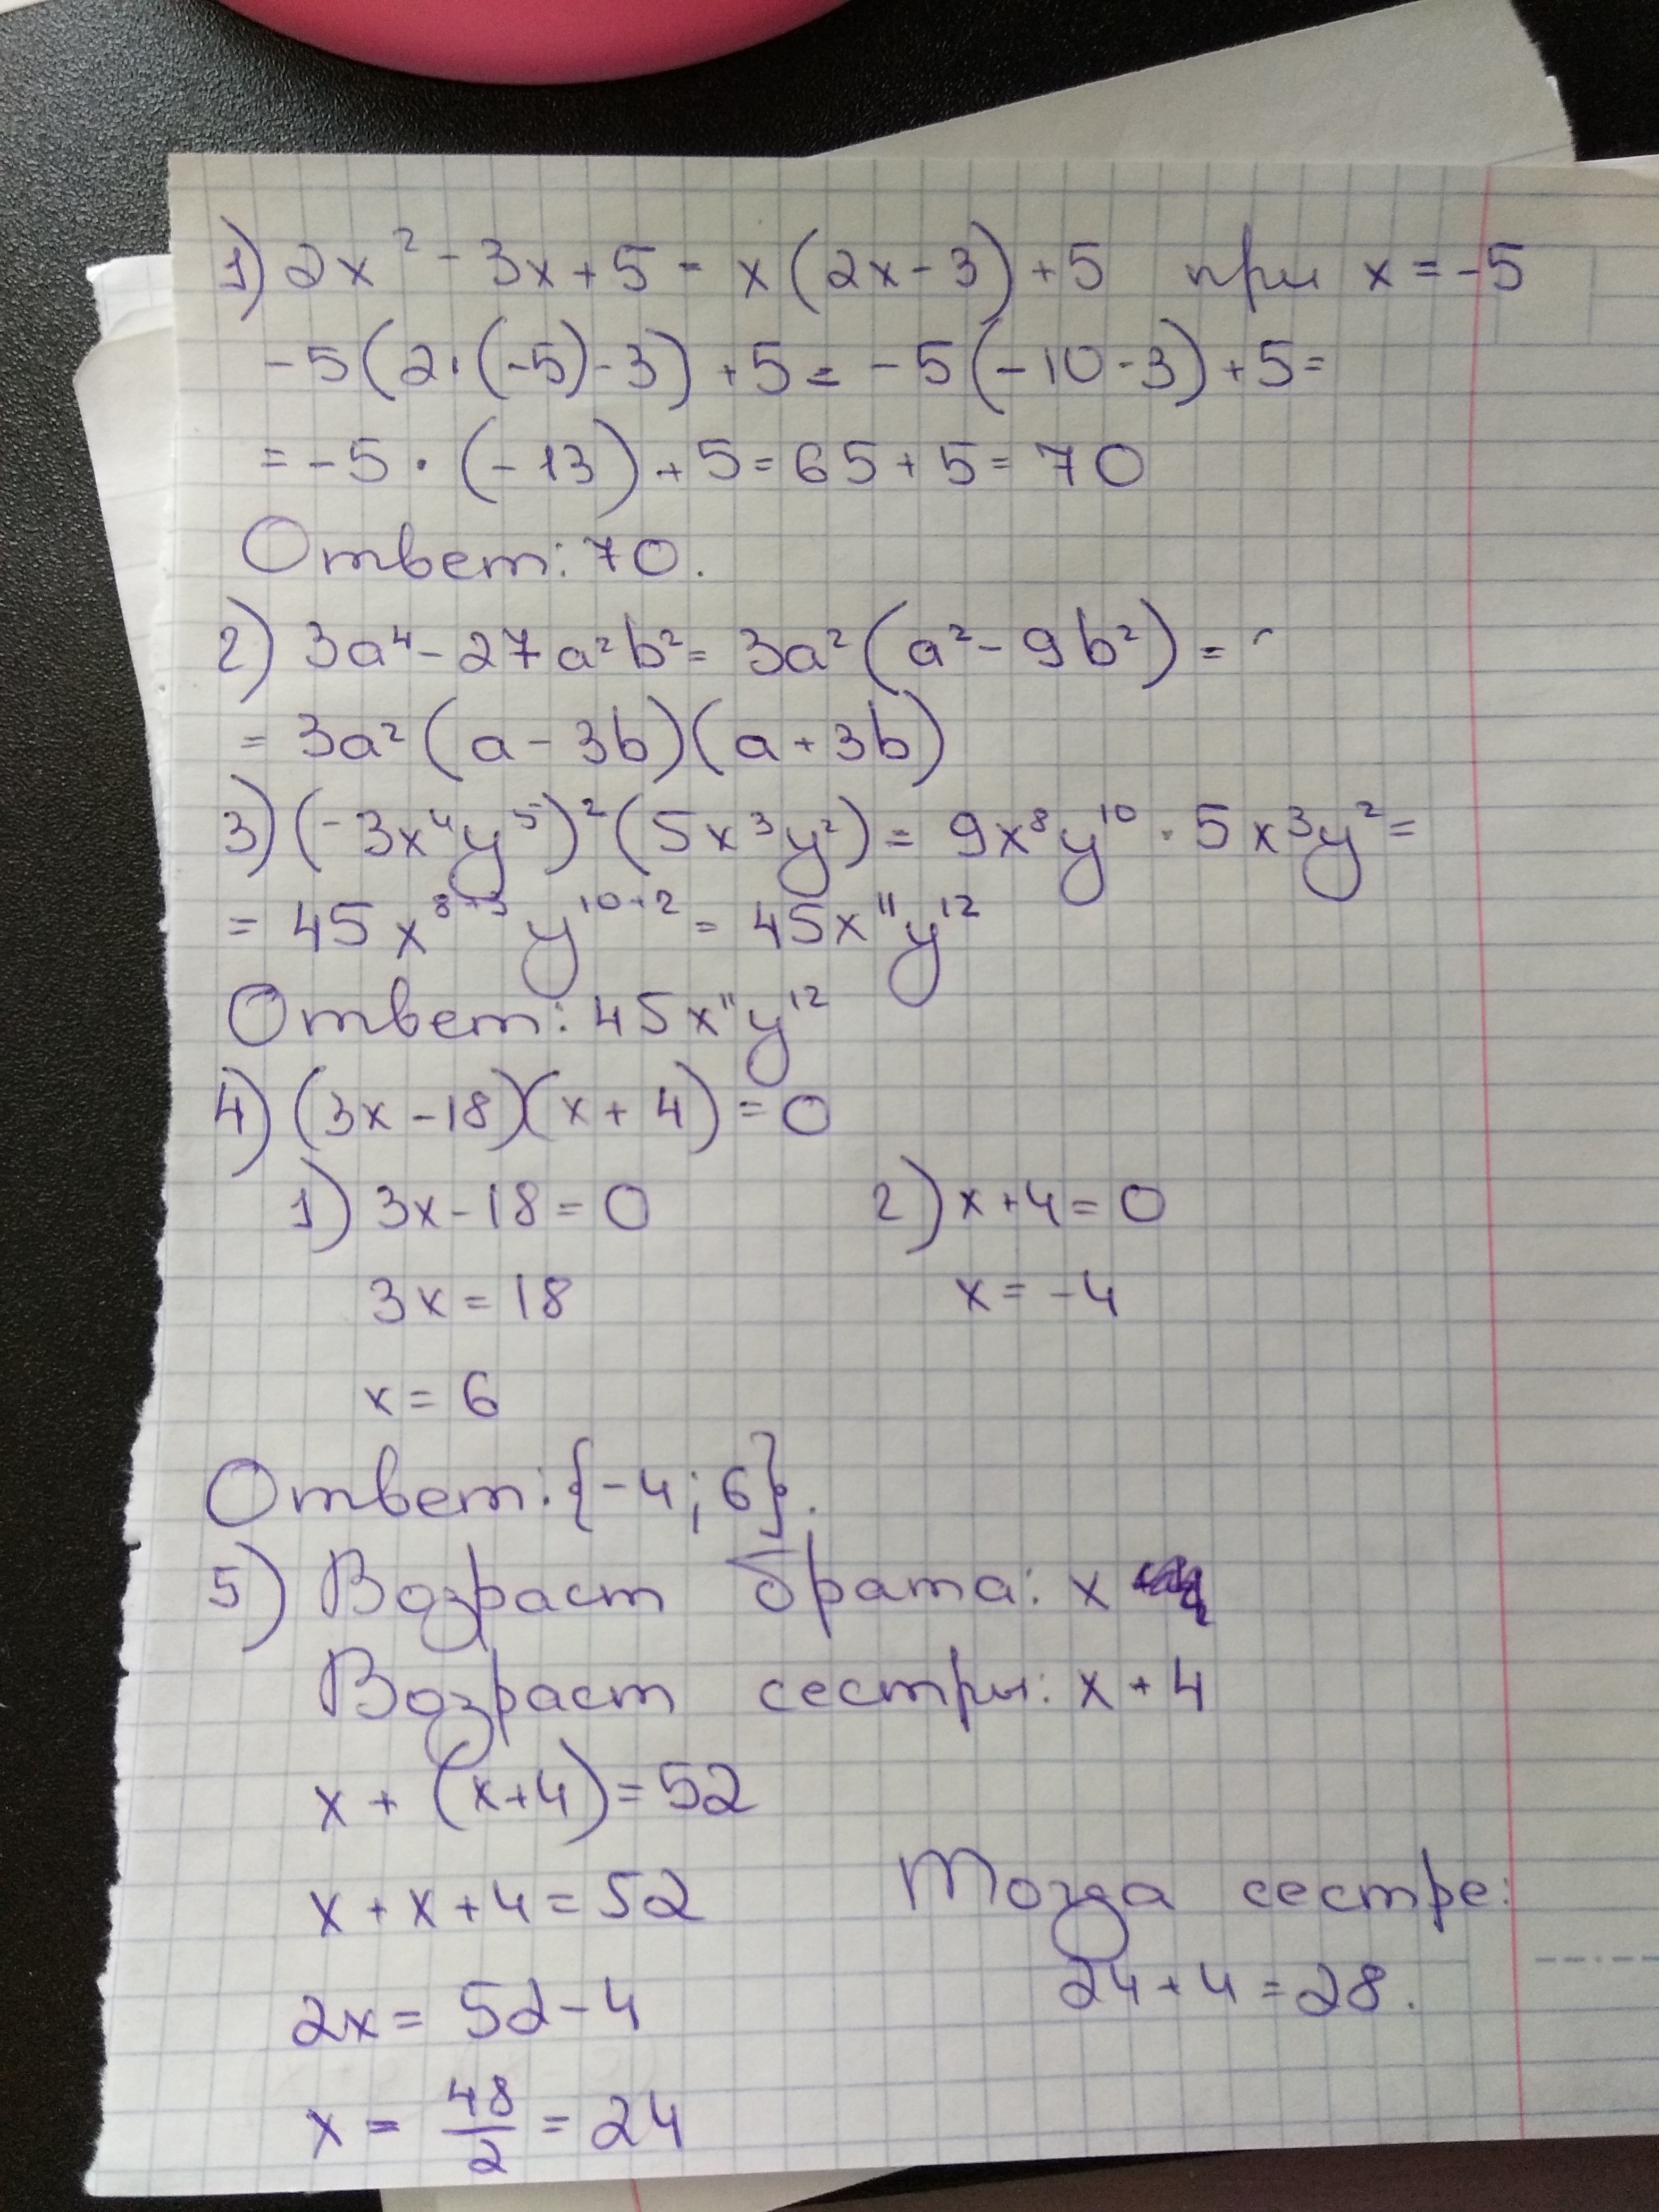 1) 2x² - 3x + 5 = x(2x - 3) + 5 при x = -5
-5(2·(-5) - 3) + 5 = -5(-10 - 3) + 5 =
= -5 · (-13) + 5 = 65 + 5 = 70
Ответ: 70.
2) 3a⁴ - 27a²b² = 3a²(a² - 9b²) =
= 3a²(a - 3b)(a + 3b)
3) (-3x⁴y⁵)²(5x³y²) = 9x⁸y¹⁰ · 5x³y² =
= 45x⁸⁺³y¹⁰⁺² = 45x¹¹y¹²
Ответ: 45x¹¹y¹²
4) (3x - 18)(x + 4) = 0
1) 3x - 18 = 0 2) x + 4 = 0
3x = 18 x = -4
x = 6
Ответ: {-4; 6}.
5) Возраст брата: x
Возраст сестры: x + 4
x + (x + 4) = 52
x + x + 4 = 52
2x = 52 - 4
x = 48/2 = 24
Тогда сестре:
24 + 4 = 28.